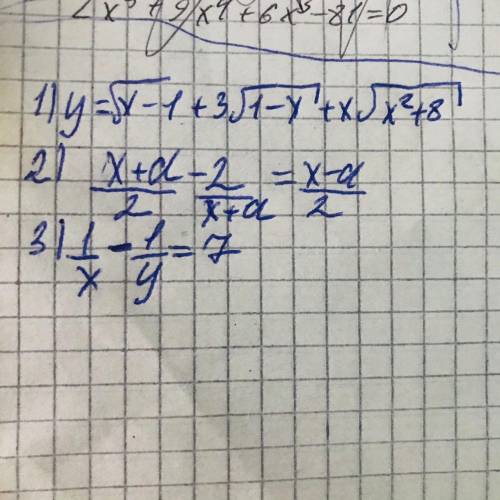 2x³+9x⁴+6x³-81=0
1) y=√x-1+3√1-x+x√x²+8
2) (x+a)/2 - 2/(x+a) = (x-a)/2
3) 1/x - 1/y = 7